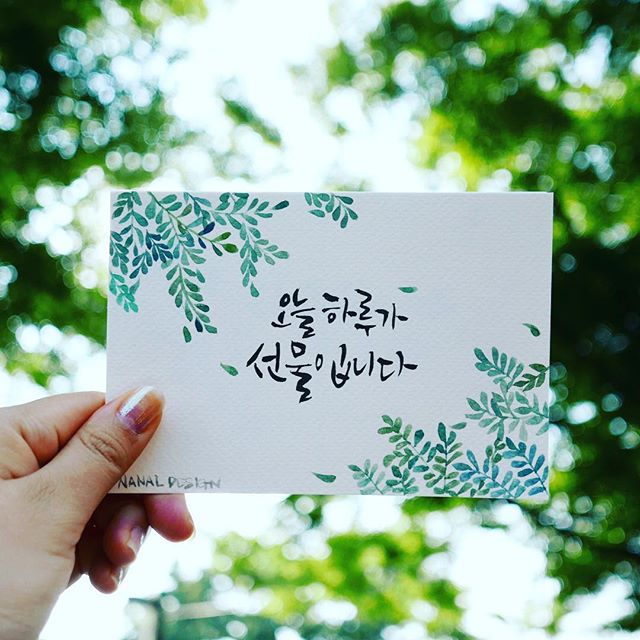 오늘 하루가
선물입니다
NANAL DESIGN